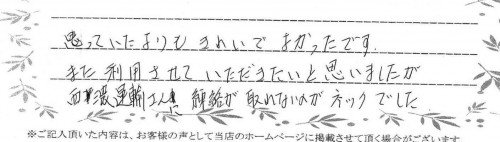 思っていたよりもきれいでよかったです.
また利用させていただきたいと思いましたが
西濃運輸さんに 連絡が 取れないのが ネックでした.
※ご記入頂いた内容は、お客様の声として当店のホームページに掲載させて頂く場合がございます